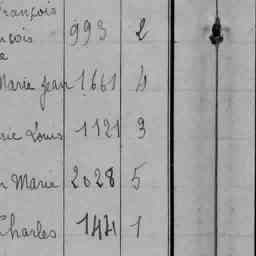 François
nçois 993 2
e
Marie Jean 1661 4
rie Louis 1121 3
n Marie 2028 5
Charles 1441 1